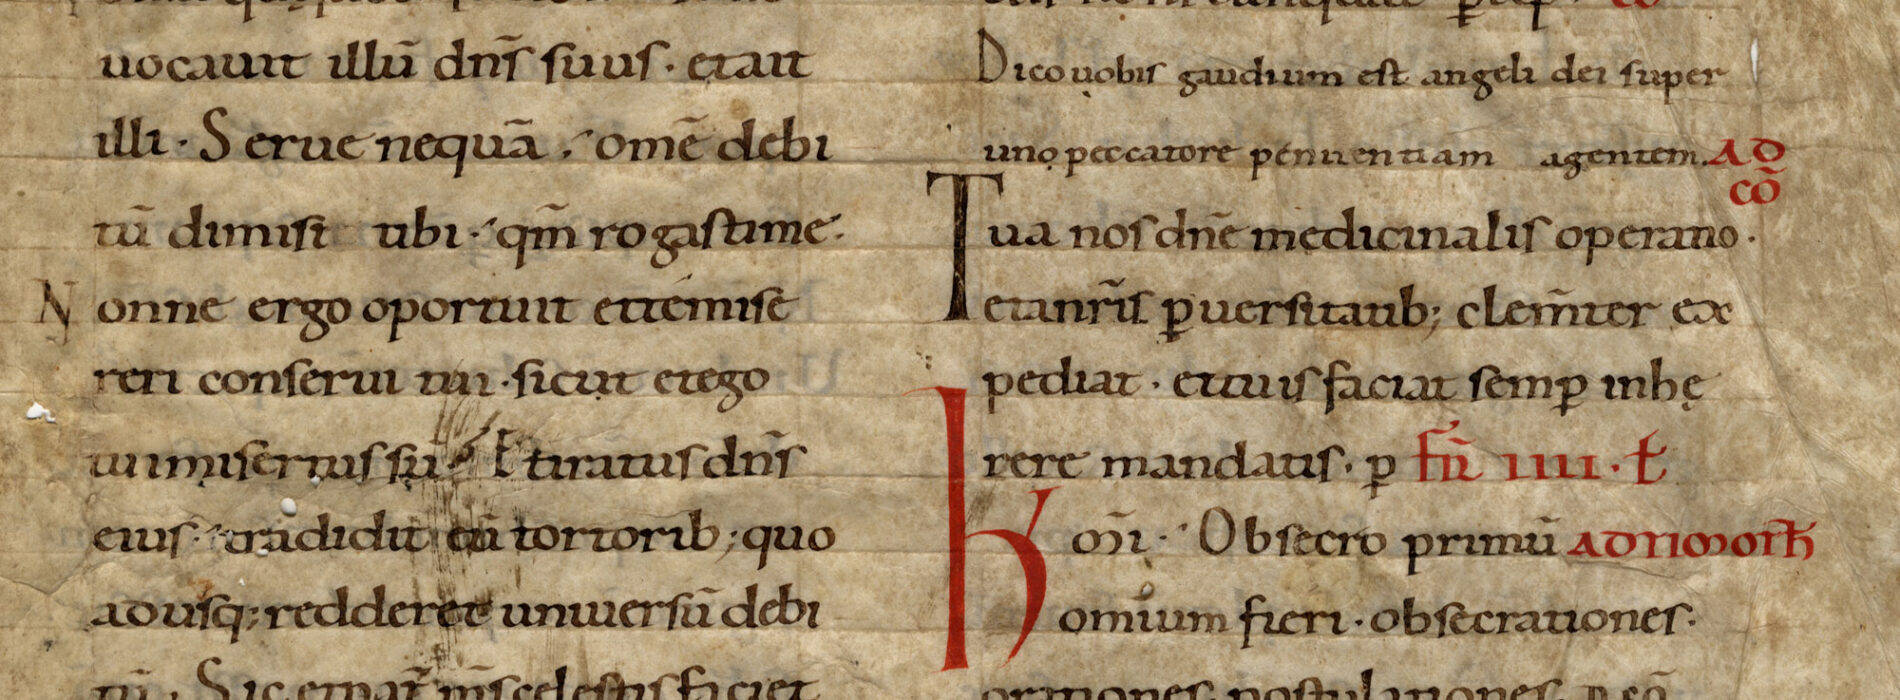 uocauit illū dn̄s suus · etait
illi · Serue nequā ; omē debi
tū dimisi tibi · qm̄ rogastime ·
Nonne ergo oportuit ettemise
reri conserui tui · sicut etego
tuimisertus sū · Et iratus dn̄s
eius · tradidit eū tortorib; quo
adusq; redderet uniuersū debi
tū · Sic etpat̄ m̄s celestis faciet
Dico uobis gaudium est angeli dei super
uno peccatore penitentiam agentem. AD
CŌ
Tua nos dn̄e medicinalis operatio ·
etanr̄is ꝑuersitatib; clem̄ter ex
pediat · ettuis faciat semꝑ inhę
rere mandatis · ꝑ fr̄ IIII · t
kom̄i · Obsecro primū ADTIMOTH̄
omium fieri · obsecrationes ·
orationes postulationes